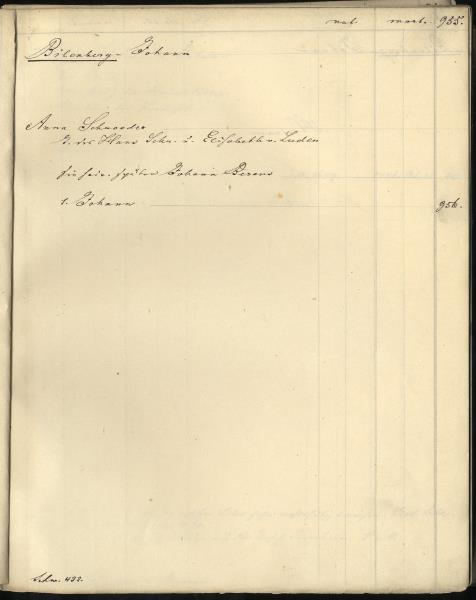 nat. mort. 955.
Bilenberg, Johann
Anna Schroeder
T. des Hans Schr. u. Elisabeth v. Luden
sie heir. später Johann Berens
1. Johann 956.
Schr. 492.